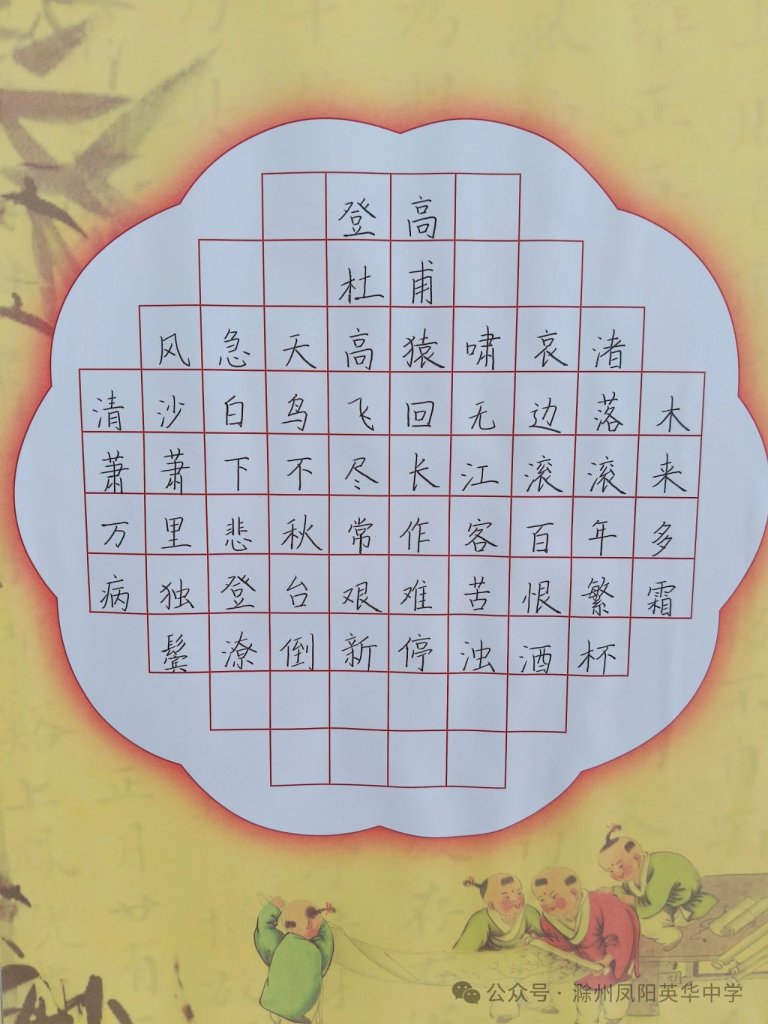 登高
杜甫
风急天高猿啸哀渚
清沙白鸟飞回无边落木
萧萧下不尽长江滚滚来
万里悲秋常作客百年多
病独登台艰难苦恨繁霜
鬓潦倒新停浊酒杯
公众号·滁州凤阳英华中学